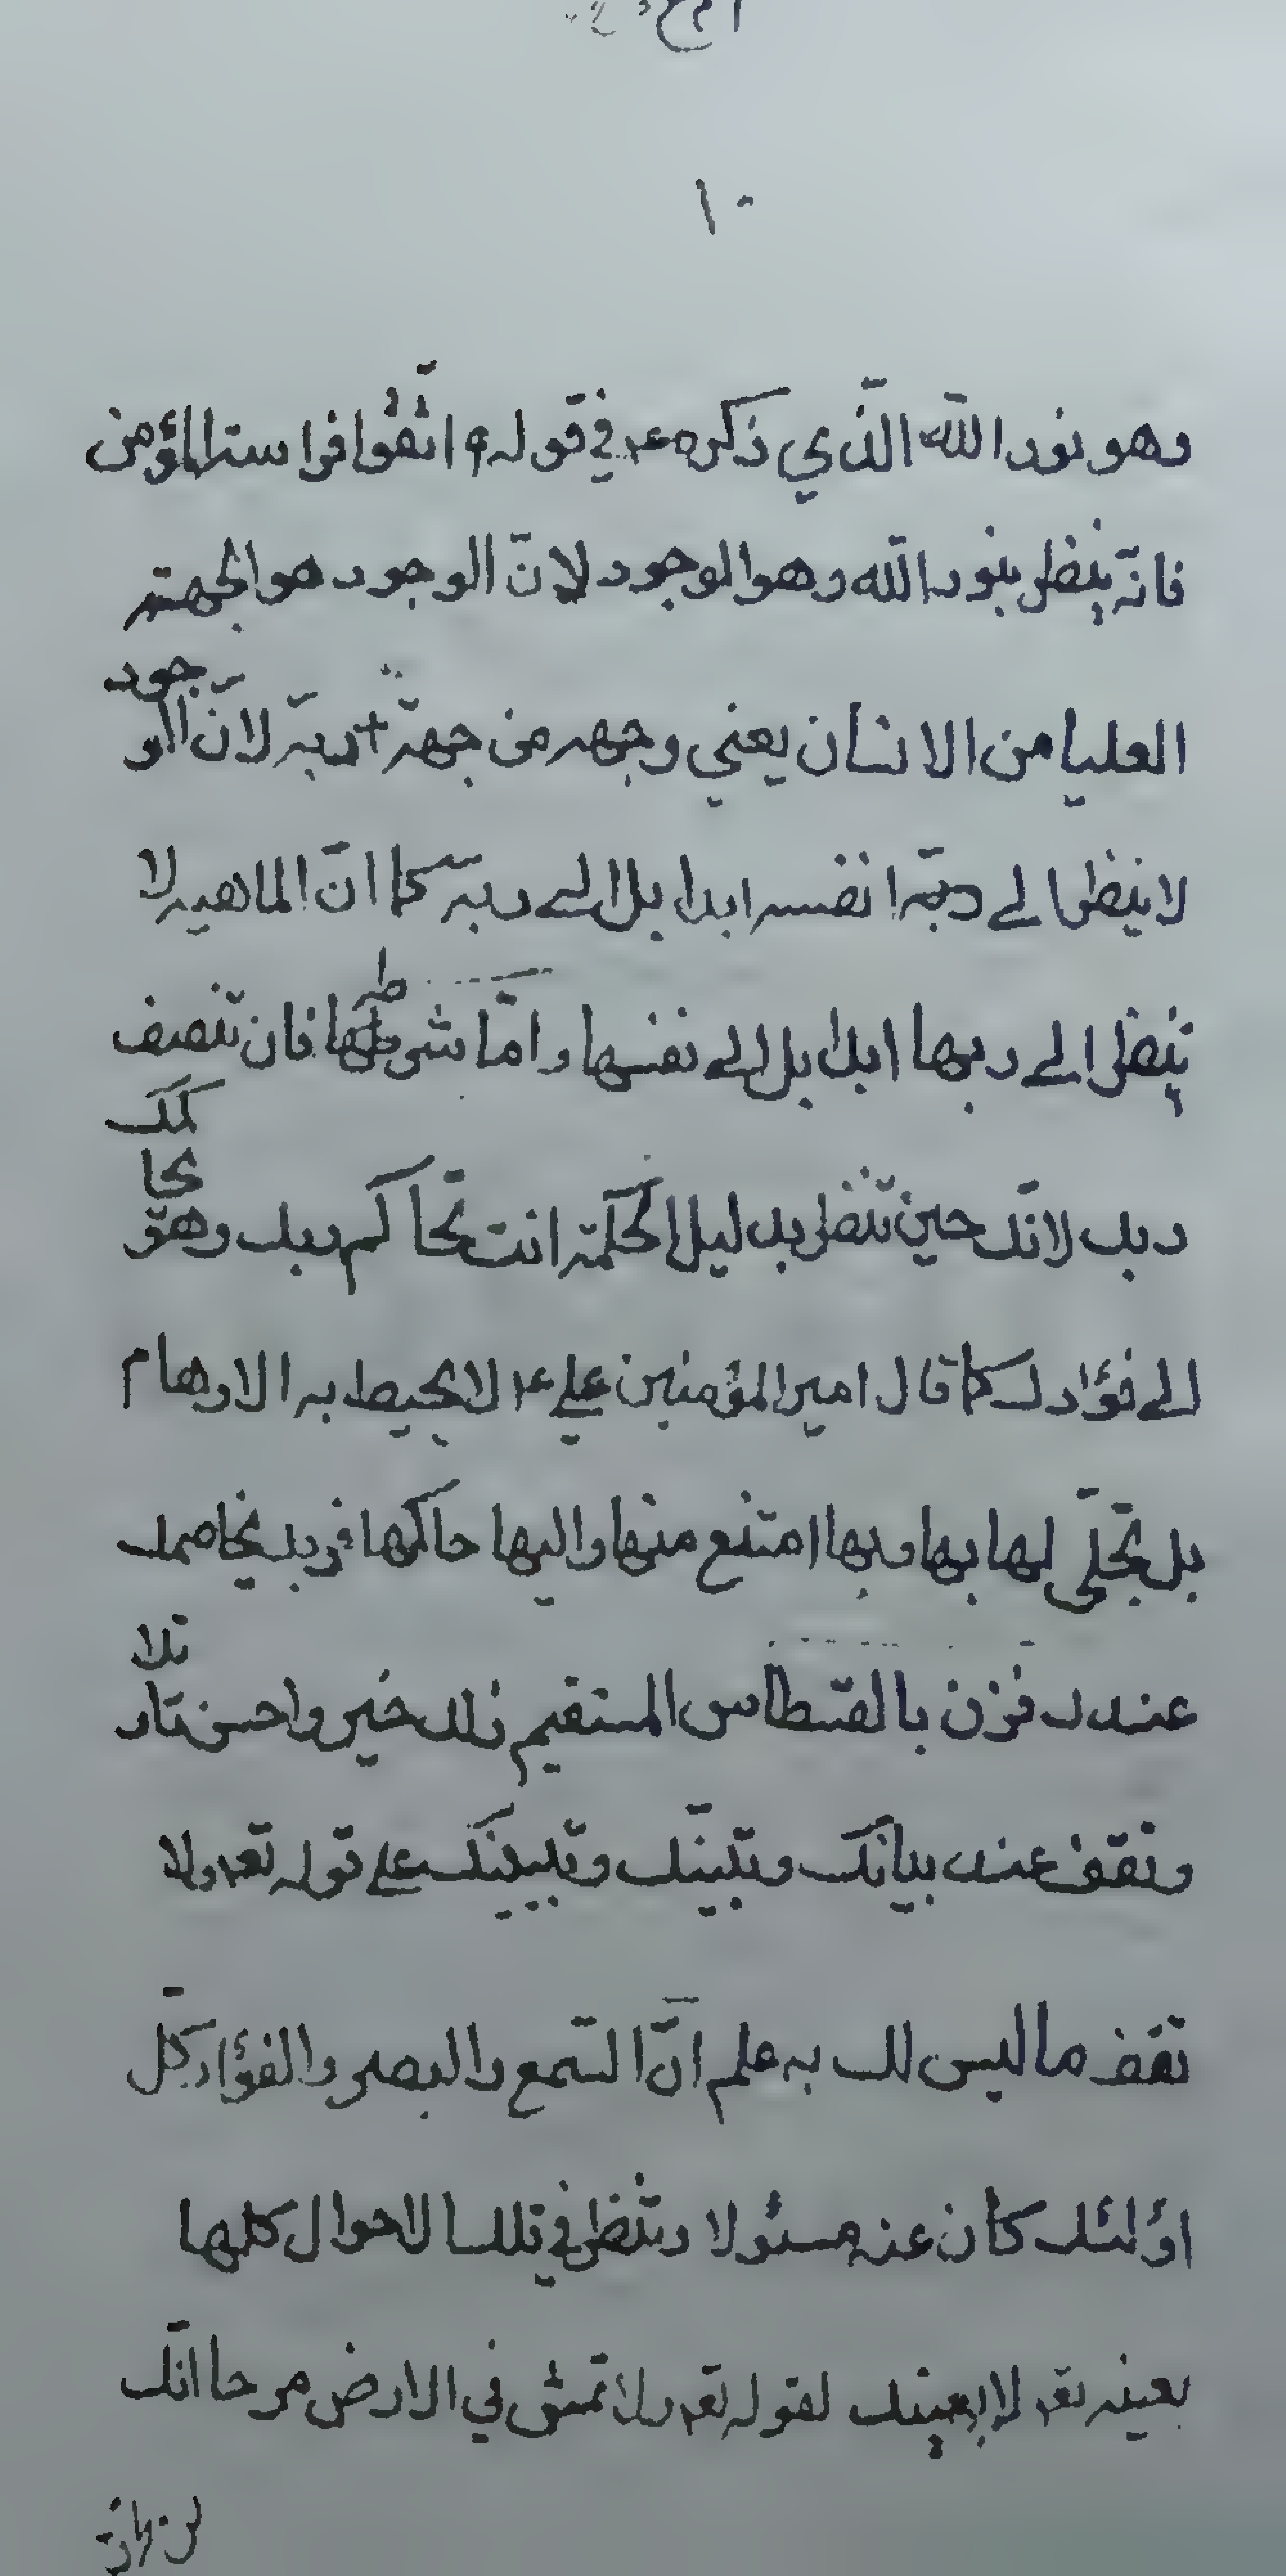 ١٠
وهو نور الله الّذي ذكره ع في قوله ؟ اتّقوا فراسة المؤمن
فانّه ينظر بنور الله وهو الوجود لانّ الوجود هو الجهة
العليا من الانسان يعني وجهه من جهة ربه لانّ الوجود
لا ينظر الى نفسه ابدا بل الى ربه كما انّ الماهية لا
تنظر الى ربها ابدا بل الى نفسها وامّا شرطها فان تنصف
ربك لانّك حين تنظر بدليل الحكمة انت تحاكم ربك وهو يحاكمك
الى فؤادك كما قال امير المؤمنين علي ع لا تحيط به الاوهام
بل تجلّى لها بها وبها امتنع منها واليها حاكمها فربك يخاصمك
عندك فزن بالقسطاس المستقيم ذلك خير واحسن تاويلا
وتقف عند بيانك وتبينّك وتبيينك على قوله تعه ولا
تقف ما ليس لك به علم انّ السّمع والبصر والفؤاد كلّ
اولئك كان عنه مسئولا وتنظر في تلك الاحوال كلها
بعينه تعه لا بعينك لقوله تعه ولا تمش في الارض مرحا انّك
لن